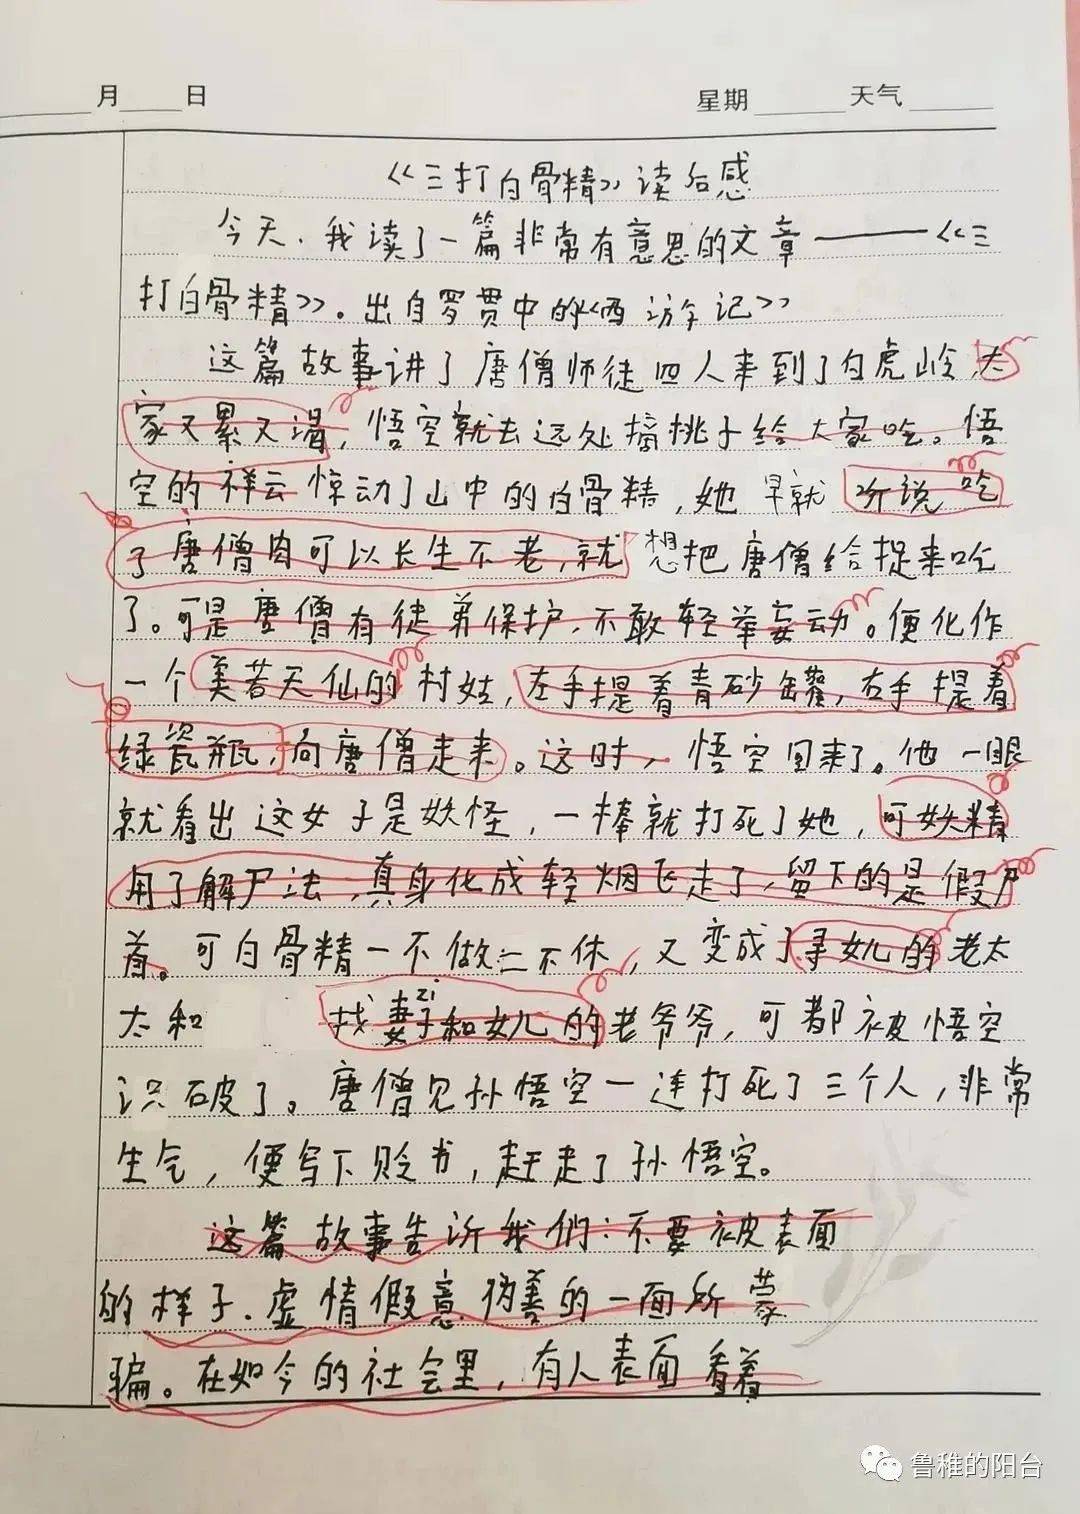 月 日 星期 天气
《三打白骨精》读后感
今天,我读了一篇非常有意思的文章——《三
打白骨精》。出自罗贯中的《西游记》
这篇故事讲了唐僧师徒四人来到了白虎岭,大
家又累又渴,悟空就去远处摘桃子给大家吃。悟
空的祥云惊动了山中的白骨精,她早就听说吃
了唐僧肉可以长生不老,就想把唐僧给捉来吃
了。可是唐僧有徒弟保护,不敢轻举妄动。便化作
一个美若天仙的村姑,左手提着青砂罐,右手提着
绿瓷瓶,向唐僧走来。这时,悟空回来了。他一眼
就看出这女子是妖怪,一棒就打死了她,可妖精
用了解尸法,真身化成轻烟飞走了,留下的是假尸
首。可白骨精一不做二不休,又变成了寻女儿的老太
太和 找妻子和女儿的老爷爷,可都被悟空
zi
识破了。唐僧见孙悟空一连打死了三个人,非常
生气,便写下贬书,赶走了孙悟空。
这篇故事告诉我们:不要被表面
的样子、虚情假意、伪善的一面所蒙
骗。在如今的社会里,有人表面看着
鲁稚的阳台